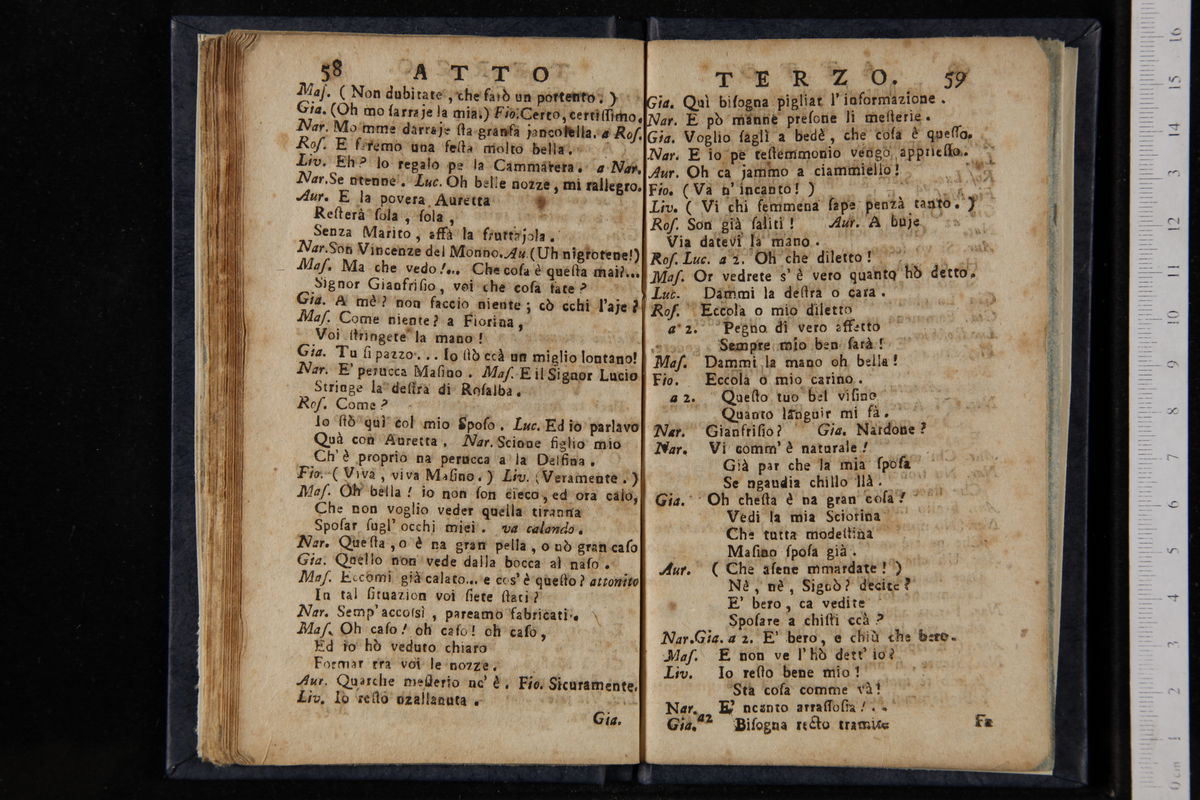 58 ATTO
Maſ. (Non dubitate, che farò un portento.)
Gia. (Oh mo ſarraje la mia.) Fio. Certo, certiſſimo.
Nar. Mo mme darraje ſta granfa jancolella. a Roſ.
Roſ. E faremo una feſta molto bella.
Liv. Eh? lo regalo pe la Cammarera. a Nar.
Nar. Se ntenne. Luc. Oh belle nozze, mi rallegro.
Aur. E la povera Auretta
Reſterà ſola, ſola,
Senza Marito, affà la fruttajola.
Nar. Son Vincenze del Monno. Au. (Uh nigrotene!)
Maſ. Ma che vedo!... Che coſa è queſta mai?...
Signor Gianfriſio, voi che coſa fate?
Gia. A mè? non faccio niente; cò cchi l'aje?
Maſ. Come niente? a Fiorina,
Voi ſtringete la mano!
Gia. Tu ſi pazzo... Io ſtò ccà un miglio lontano!
Nar. E' perucca Maſino. Maſ. E il Signor Lucio
Stringe la deſtra di Roſalba.
Roſ. Come?
Io ſtò quì col mio Spoſo. Luc. Ed io parlavo
Quà con Auretta, Nar. Scione figlio mio
Ch'è proprio na perucca a la Delfina.
Fio. (Viva, viva Maſino.) Liv. (Veramente.)
Maſ. Oh bella! io non ſon cieco, ed ora calo,
Che non voglio veder quella tiranna
Spoſar ſugl'occhi miei. va calando.
Nar. Queſta, o è na gran pella, o nò gran caſo
Gia. Quello non vede dalla bocca al naſo.
Maſ. Eccomi già calato... e cos'è queſto? attonito
In tal ſituazion voi ſiete ſtati?
Nar. Semp'accoſsì, pareamo fabricati.
Maſ. Oh caſo! oh caſo! oh caſo,
Ed io hò veduto chiaro
Formar tra voi le nozze.
Aur. Quarche meſterio nc'è. Fio. Sicuramente.
Liv. Io reſto nzallanuta.
Gia.
TERZO. 59
Gia. Quì biſogna pigliar l'informazione.
Nar. E pò manne preſone li meſterie.
Gia. Voglio ſaglì a bedè, che coſa è queſſo.
Nar. E io pe reſtemmonio vengo appriesſo.
Aur. Oh ca jammo a ciammiello!
Fio. (Va n'incanto!)
Liv. (Vi chi femmena ſape penzà tanto.)
Roſ. Son già ſaliti! Aur. A buje
Via datevi la mano.
Roſ. Luc. a 2. Oh che diletto!
Maſ. Or vedrete s'è vero quanto hò detto.
Luc. Dammi la deſtra o cara.
Roſ. Eccola o mio diletto
a 2. Pegno di vero affetto
Sempre mio ben ſarà!
Maſ. Dammi la mano oh bella!
Fio. Eccola o mio carino.
a 2. Queſto tuo bel viſino
Quanto languir mi fà.
Nar. Gianfriſio? Gia. Nardone?
Nar. Vi comm'è naturale!
Già par che la mia ſpoſa
Se ngaudia chillo llà.
Gia. Oh cheſta è na gran coſa!
Vedi la mia Sciorina
Che tutta modeſtina
Maſino ſpoſa già.
Aur. (Che aſene mmardate!)
Nè, nè, Signò? decite?
E' bero, ca vedite
Spoſare a chiſti ccà?
Nar. Gia. a 2. E' bero, e chiù che bero.
Maſ. E non ve l'hò dett'io?
Liv. Io reſto bene mio!
Sta coſa comme và!
Nar. E' ncanto arraſſoſia!..
Gia. a2 Biſogna recto tramite
Fa